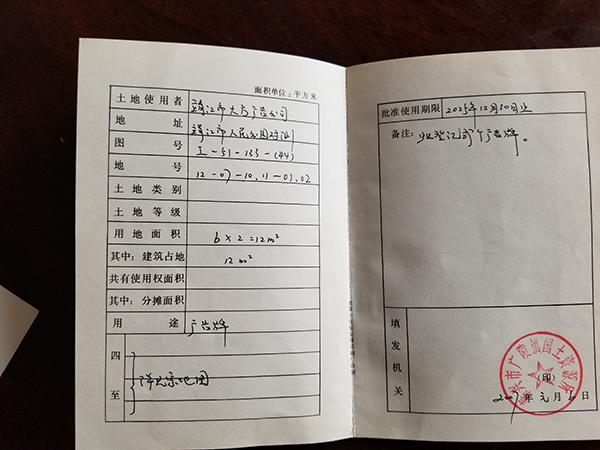 面积单位：平方米
土地使用者 市大方广告公司
地 址 市人民公园对面
图 号 I-51-133-(44)
地 号 12-07-10.11-01.02
土地类别
土地等级
用地面积 6×2=12m²
其中：建筑占地 12m²
共有使用权面积
其中：分摊面积
用 途 广告牌
四至
批准使用期限 2025年12月30日止
备注： 登记 广告牌。
填发机关
市广陵 国土
（印）
年元月 日